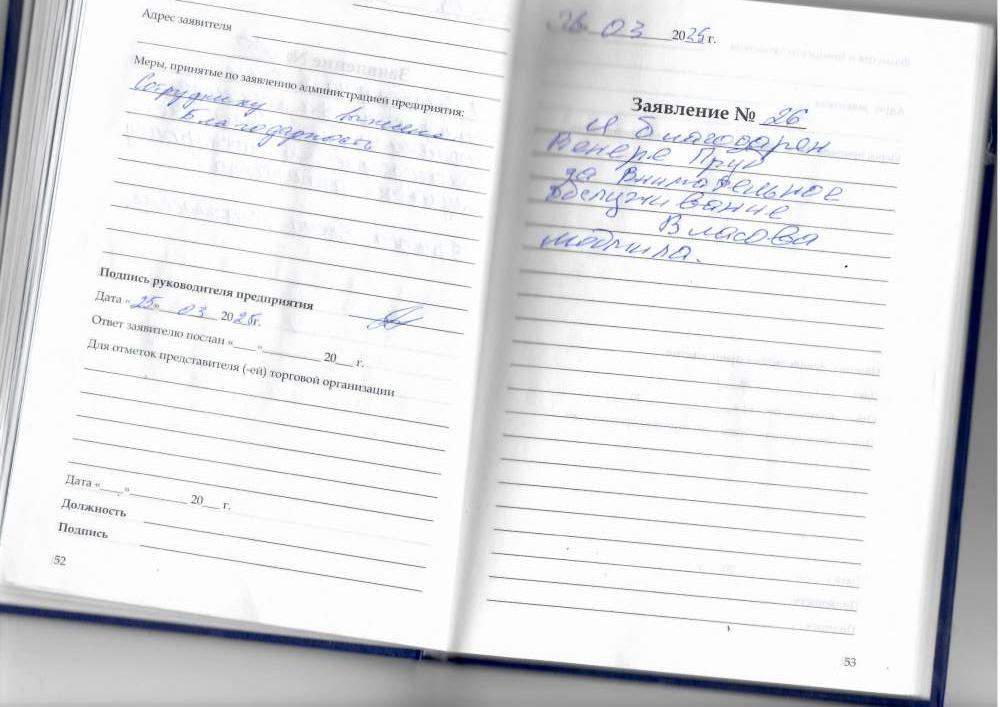 Адрес заявителя
Меры, принятые по заявлению администрацией предприятия:
Сотруднику
Благодарность
Подпись руководителя предприятия
Дата «25» 03 2025г.
Ответ заявителю послан «___»__________ 20___ г.
Для отметок представителя (-ей) торговой организации
Дата «___»__________ 20___ г.
Должность
Подпись
52
26 03 2025г.
Заявление № 26
Я благодарен
Венере Пруд
за внимательное
обслуживание
Власова
Людмила.
53